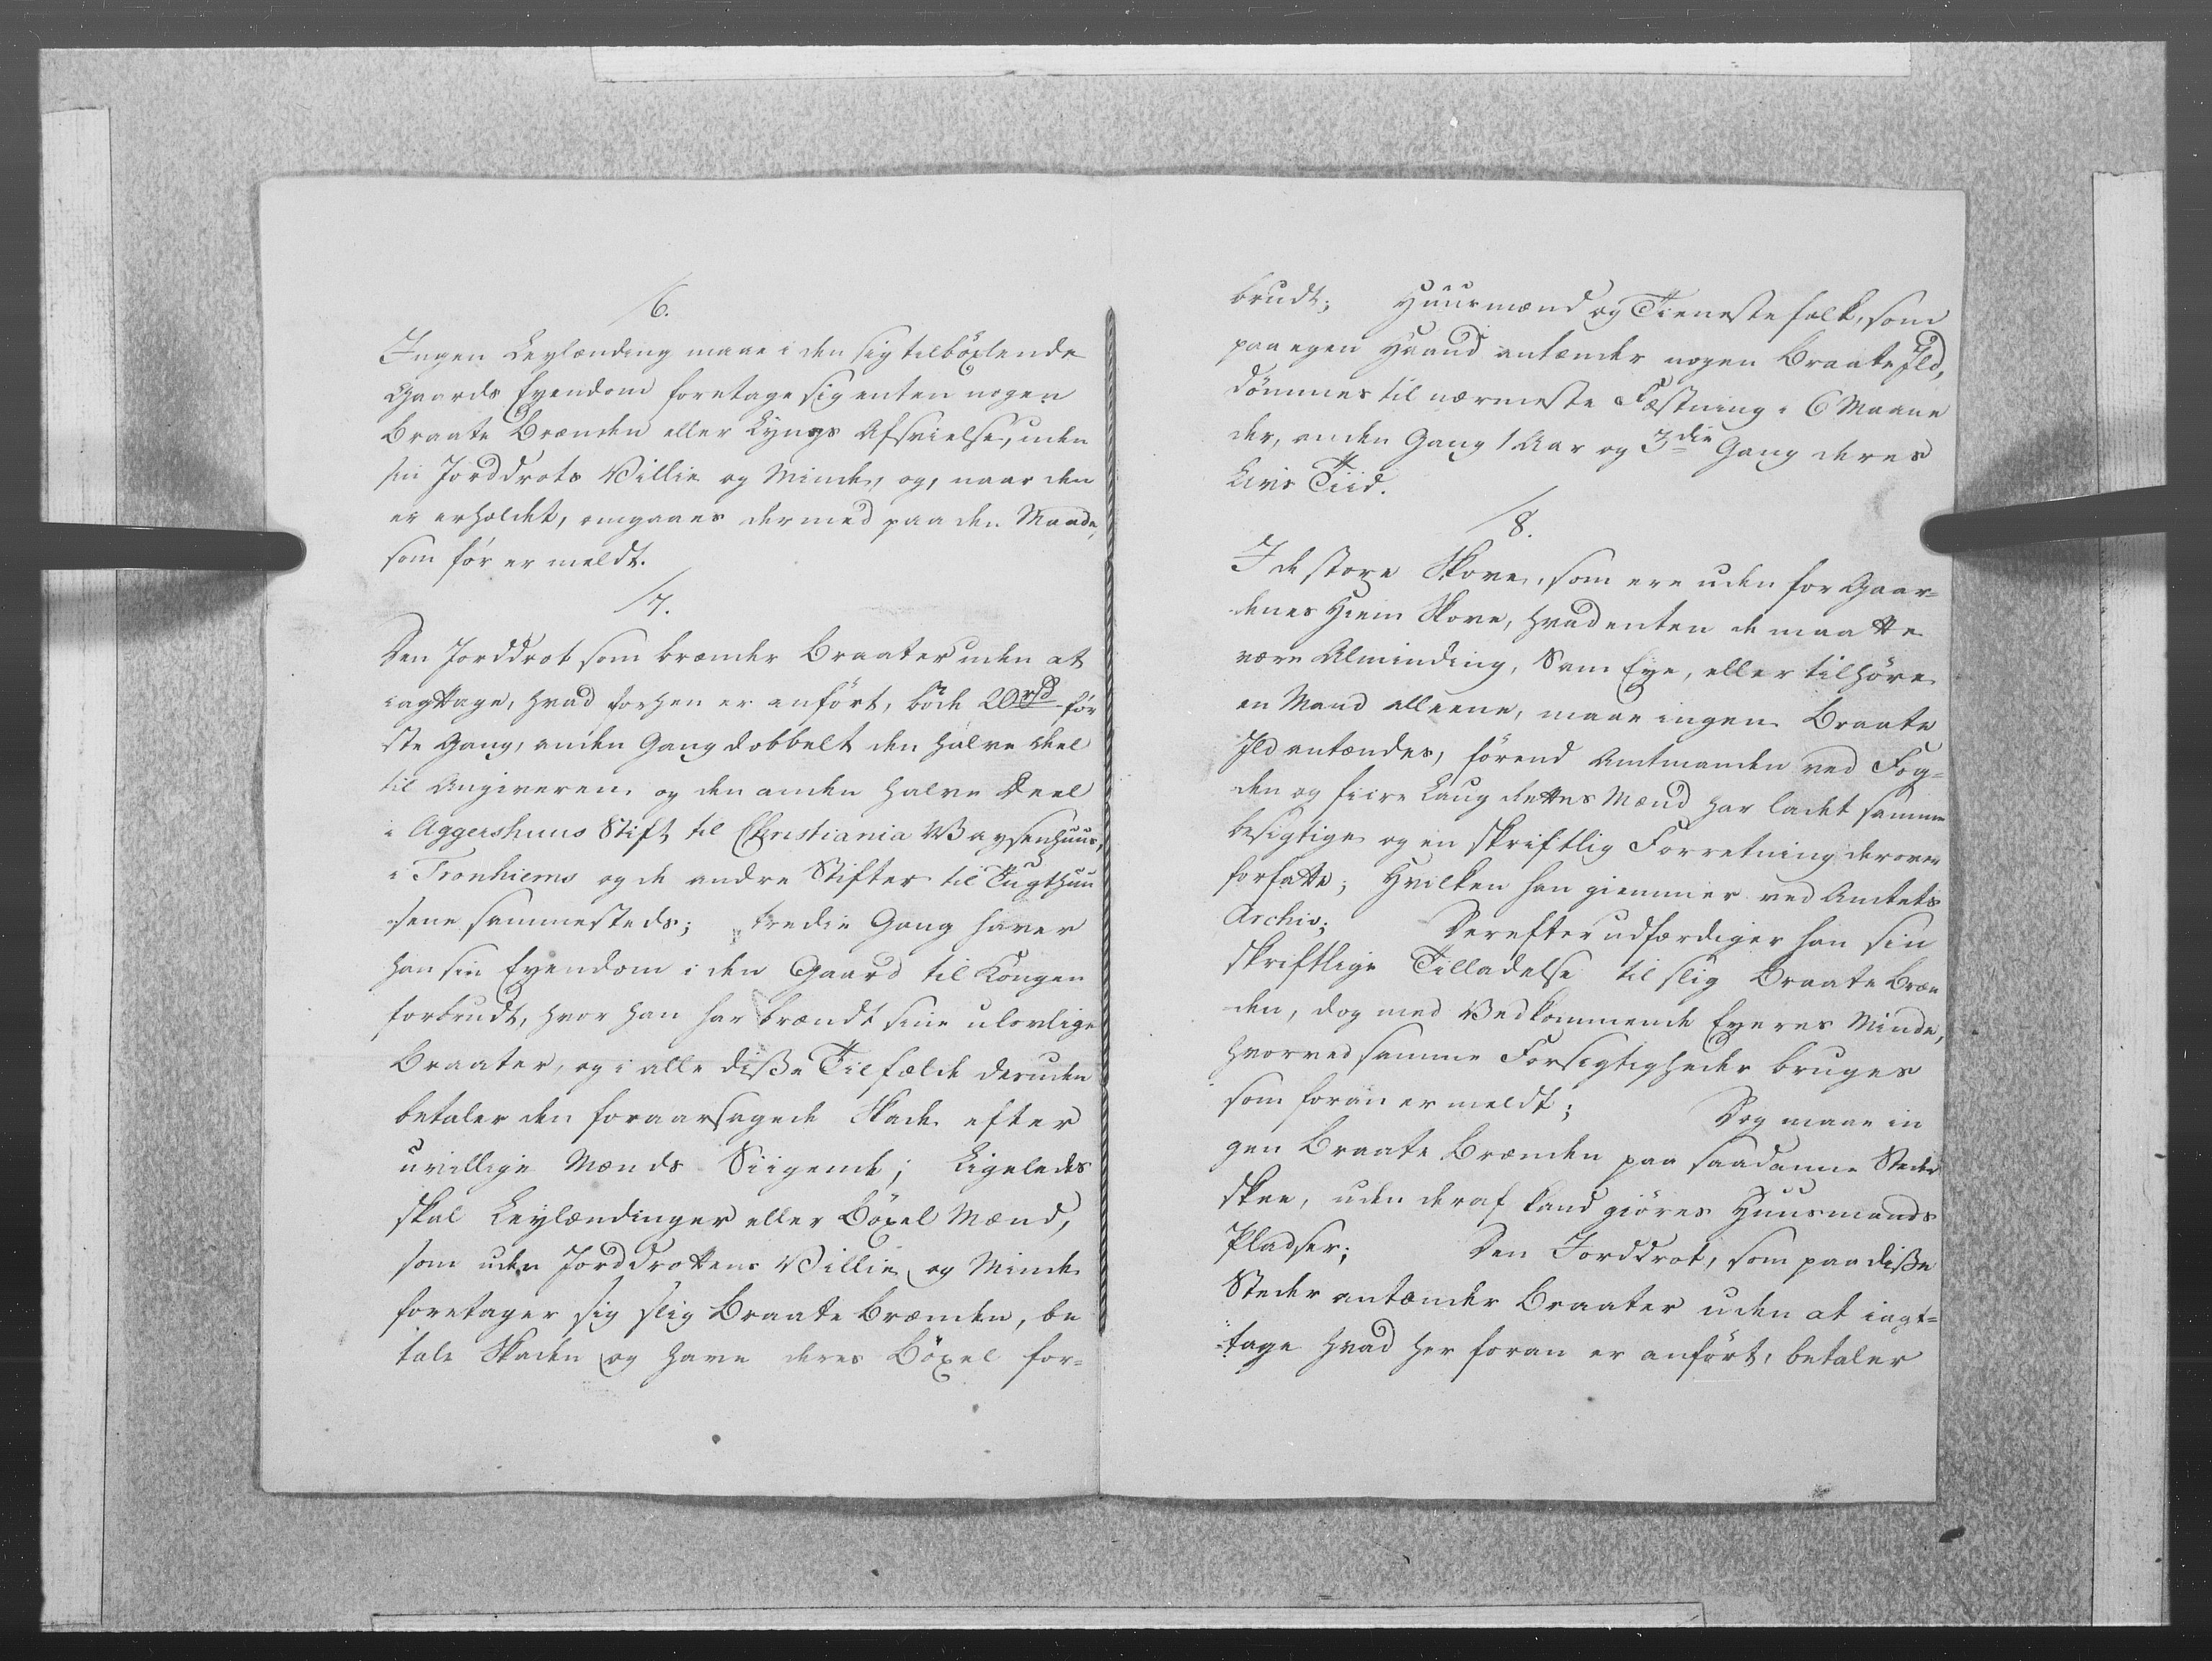 6.
Ingen Leylænding maae i den sig tilböxlende
Gaards Eyendom foretage sig enten nogen
Braate Brænden eller Lyngs Afsvielse, uden
sin Jorddrots Villie og Minde, og, naar den
er erholdet, omgaaes dermed paa den Maade,
som för er meldt.
7.
Den Jorddrot som brænder Braater uden at
iagttage, hvad forhen er anfört, böde 20 rd för
ste Gang, anden Gang dobbelt den halve Deel
til Angiveren, og den anden halve Deel
i Aggershuus Stift til Christiania Waysenhuus,
i Tronhiems og de andre Stifter til Tugthuu
sene sammesteds; tredie Gang haver
han sin Eyendom i den Gaard til Kongen
forbrudt, hvor han har brændt sine ulovlige
Braater, og i alle disse Tilfælde desuden
betaler den foraarsagede Skade efter
uvillige Mænds Siigende; Ligeledes
skal Leylændinger eller Böxel Mænd,
som uden Jorddrottens Villie og Minde
foretager sig slig Braate Brænden, be
tale Skaden og have deres Böxel for=
brudt; Huusmænd og Tieneste folk, som
paa egen Haand antænder nogen Braate Ild,
dömmes til nærmeste Fæstning i 6 Maane
der, anden Gang 1 Aar og 3die Gang deres
Livs Tiid.
8.
I de store Skove, som ere uden for Gaar=
denes Hiem Skove, hvad enten de maatte
være Alminding, Sam Eye, eller tilhöre
en Mand alleene, maae ingen Braate
Ild antændes, förend Amtmanden ved Fog=
den og fiire Laug rettes Mænd har ladet samme
besigtige og en skriftlig Forretning derover
forfatte; Hvilken han giemmer ved Amtets
Archiv; Derefter udfærdiger han sin
skriftlige Tilladelse til slig Braate Bræn
den, dog med Vedkommende Eyeres Minde,
hvorved samme Forsigtigheder bruges
som foran er meldt; Dog maae in
gen Braate Brænden paa saadanne Steder
skee, uden deraf kand giöres Huusmands
Pladser; Den Jorddrot, som paa disse
Steder antænder Braater uden at iagt=
tage hvad her foran er anfört, betaler